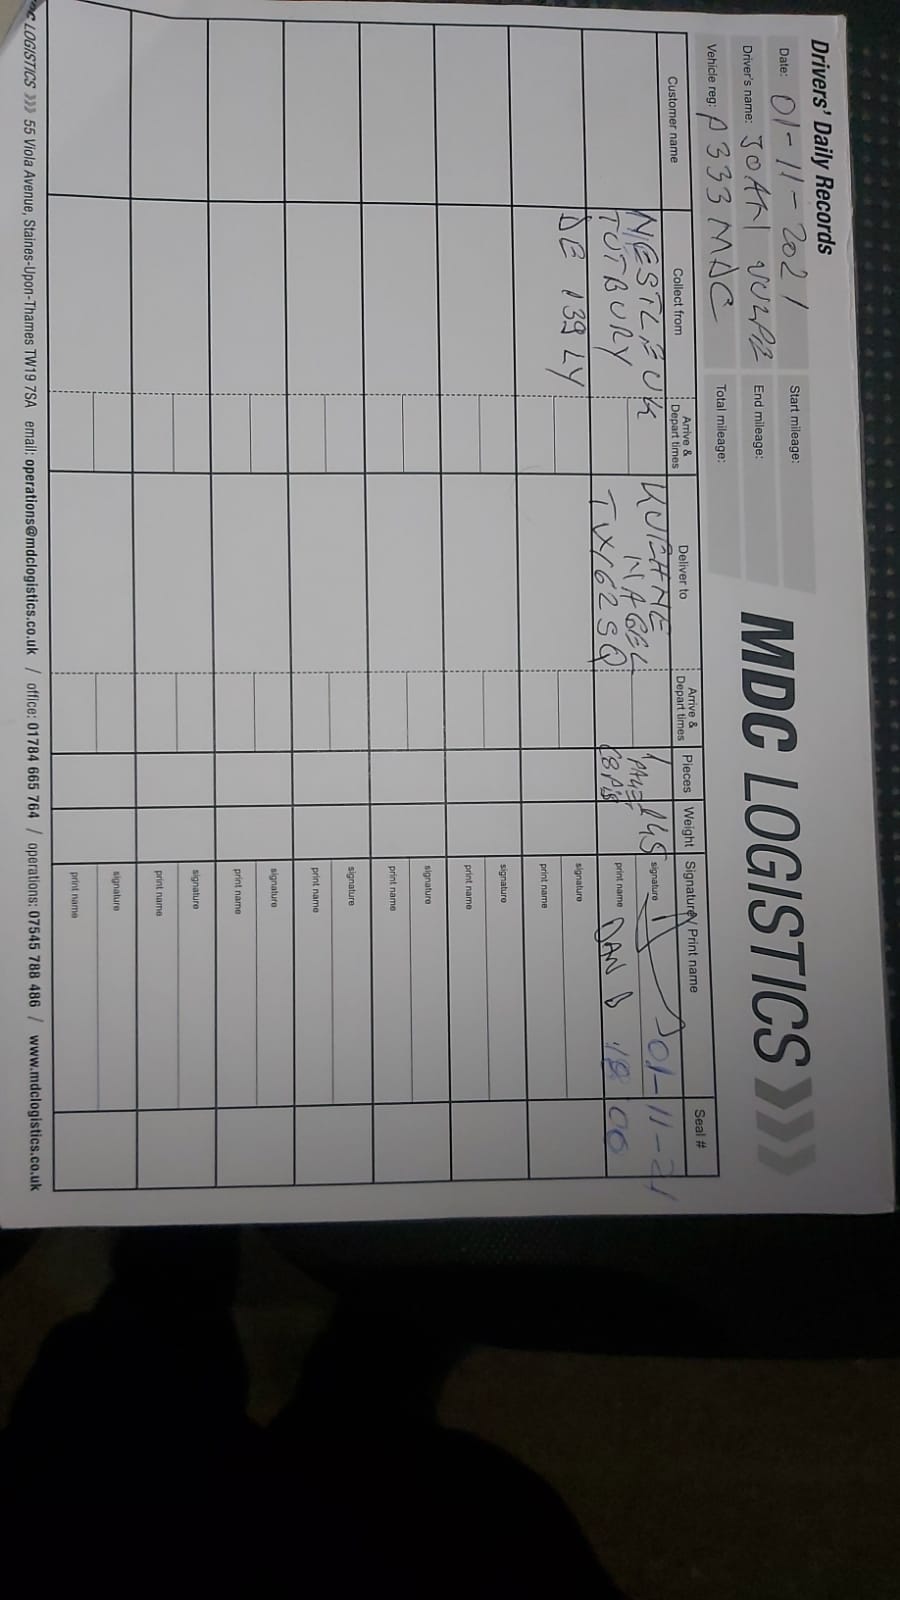 Drivers' Daily Records
MDC LOGISTICS
Date: 01-11-2021
Start mileage:
Driver's name:
End mileage:
Vehicle reg: P333 MDC
Total mileage:
Customer name
Collect from
Arrive & Depart times
Deliver to
Arrive & Depart times
Pieces
Weight
Signature/ Print name
Seal #
NESTLE UK
TUTBURY
DE 139 LY
KUEHNE
NAGEL
TW62SQ
1
PALLET
145
signature
01-11-21
print name DAN B 18 00
signature
print name
signature
print name
signature
print name
signature
print name
signature
print name
signature
print name
signature
print name
LOGISTICS 55 Viola Avenue, Staines-Upon-Thames TW19 7SA email: operations@mdclogistics.co.uk / office: 01784 665 764 / operations: 07545 788 486 / www.mdclogistics.co.uk